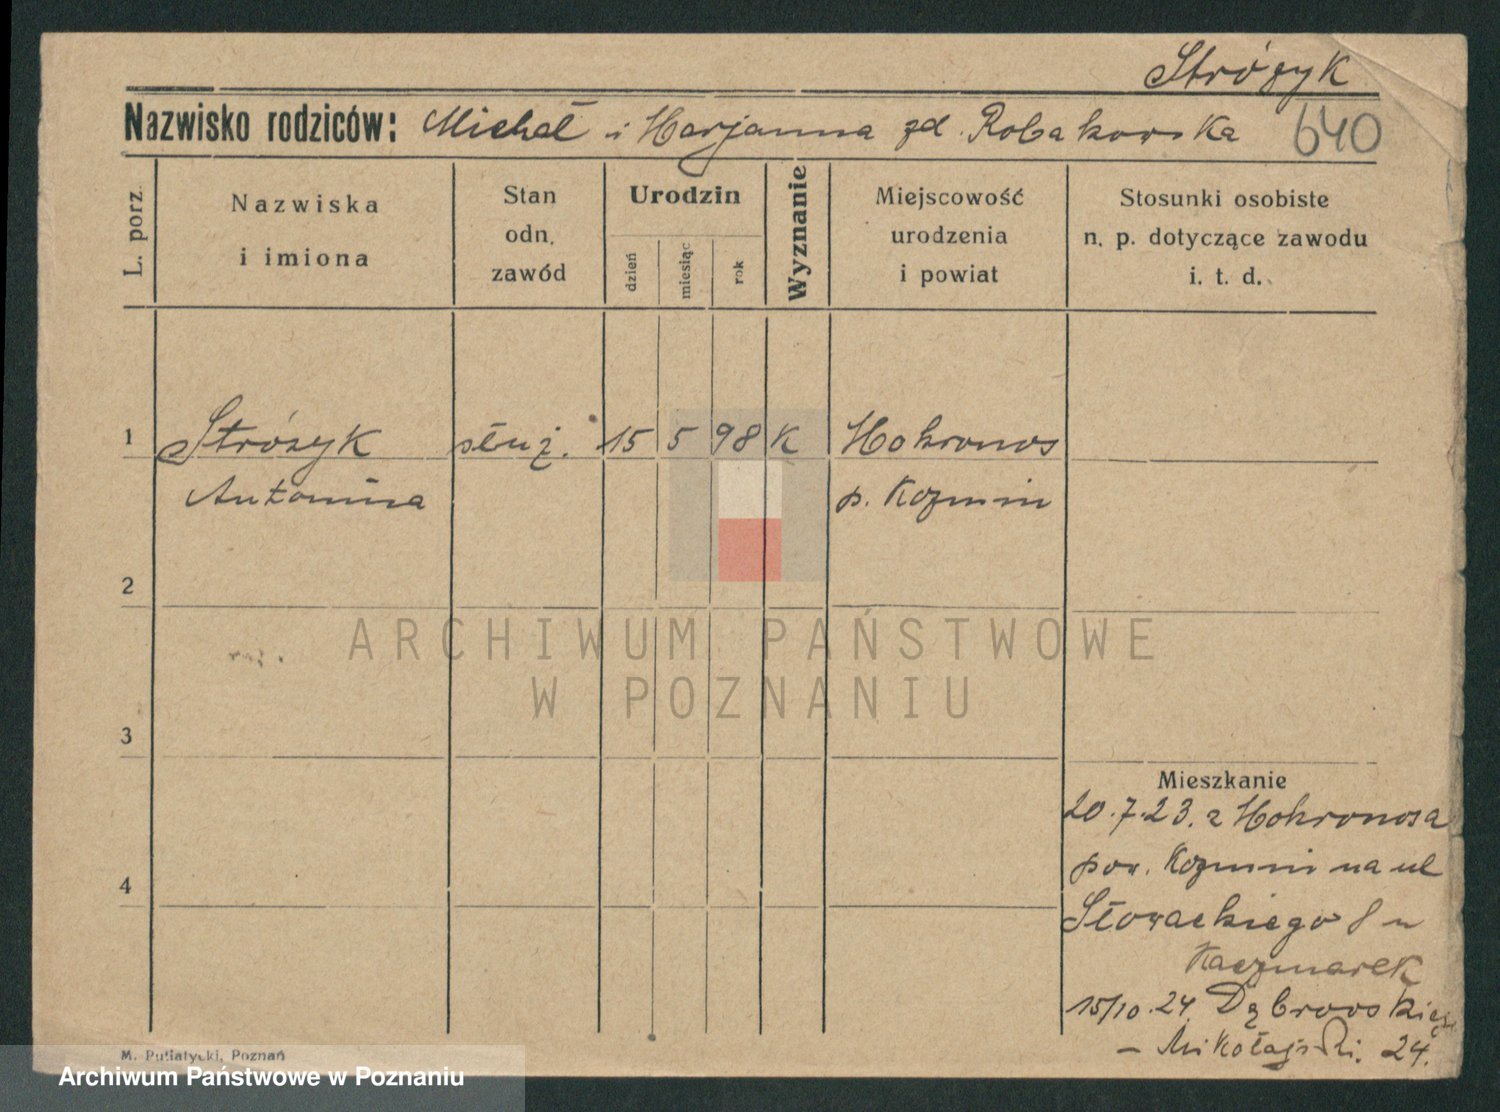 Stróżyk
Nazwisko rodziców: Michał i Marjanna zd. Robakowska 640
L. porz.
Nazwiska
i imiona
Stan
odn.
zawód
Urodzin
dzień
miesiąc
rok
Wyznanie
Miejscowość
urodzenia
i powiat
Stosunki osobiste
n. p. dotyczące zawodu
i. t. d.
1 Stróżyk służ. 15 5 98 K Mokronos
Antonina p. Kozmin
2
ARCHIWUM PAŃSTWOWE
W POZNANIU
3
Mieszkanie
20.7.23. z Mokronosa
pow. Kozmin na ul
4
Słowackiego 8 u
Kaczmarek
15/10.24. Dąbrowskiego
– Mikołajski. 24.
M. Putiatycki, Poznań
Archiwum Państwowe w Poznaniu